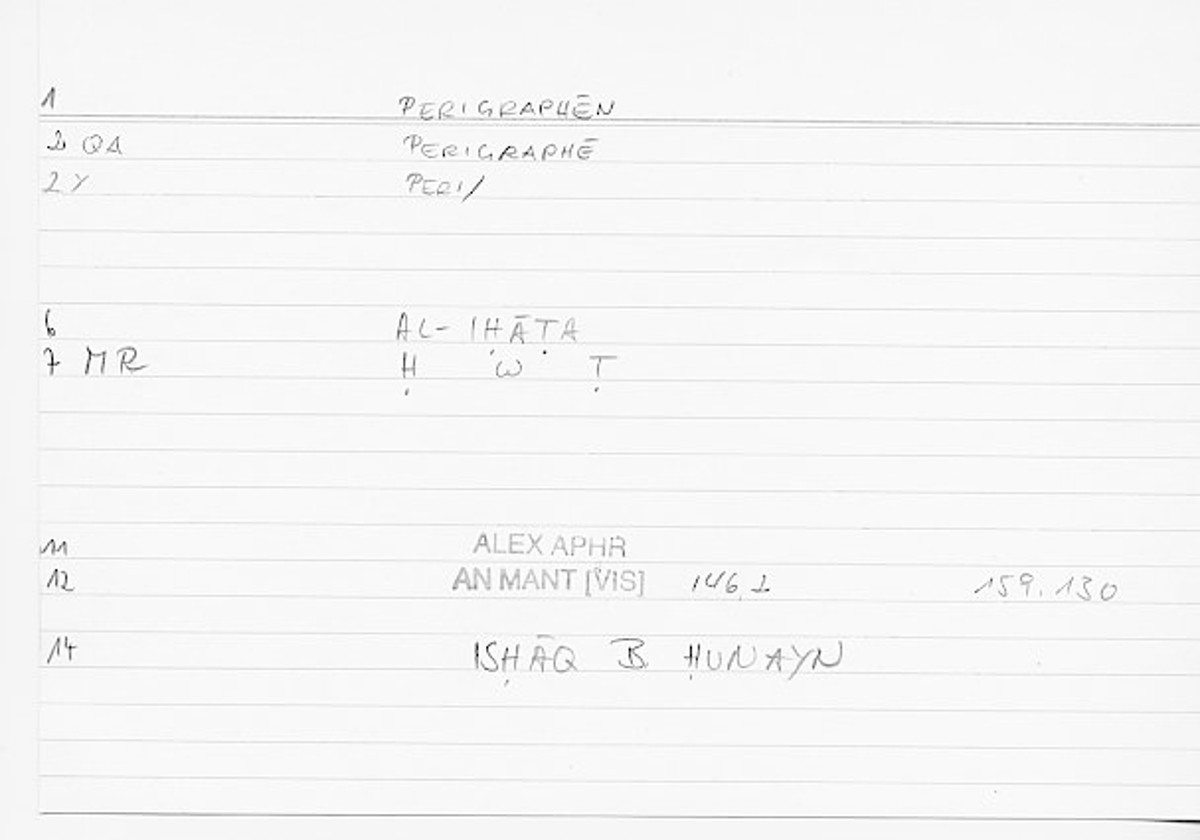 1 PERIGRAPHĒN
2 QA PERIGRAPHĒ
2Y PERI/
6 AL-IḤĀṬA
7 MR Ḥ W Ṭ
11 ALEX APHR
12 AN MANT [VIS] 146,1 159.130
14 ISḤĀQ B. ḤUNAYN